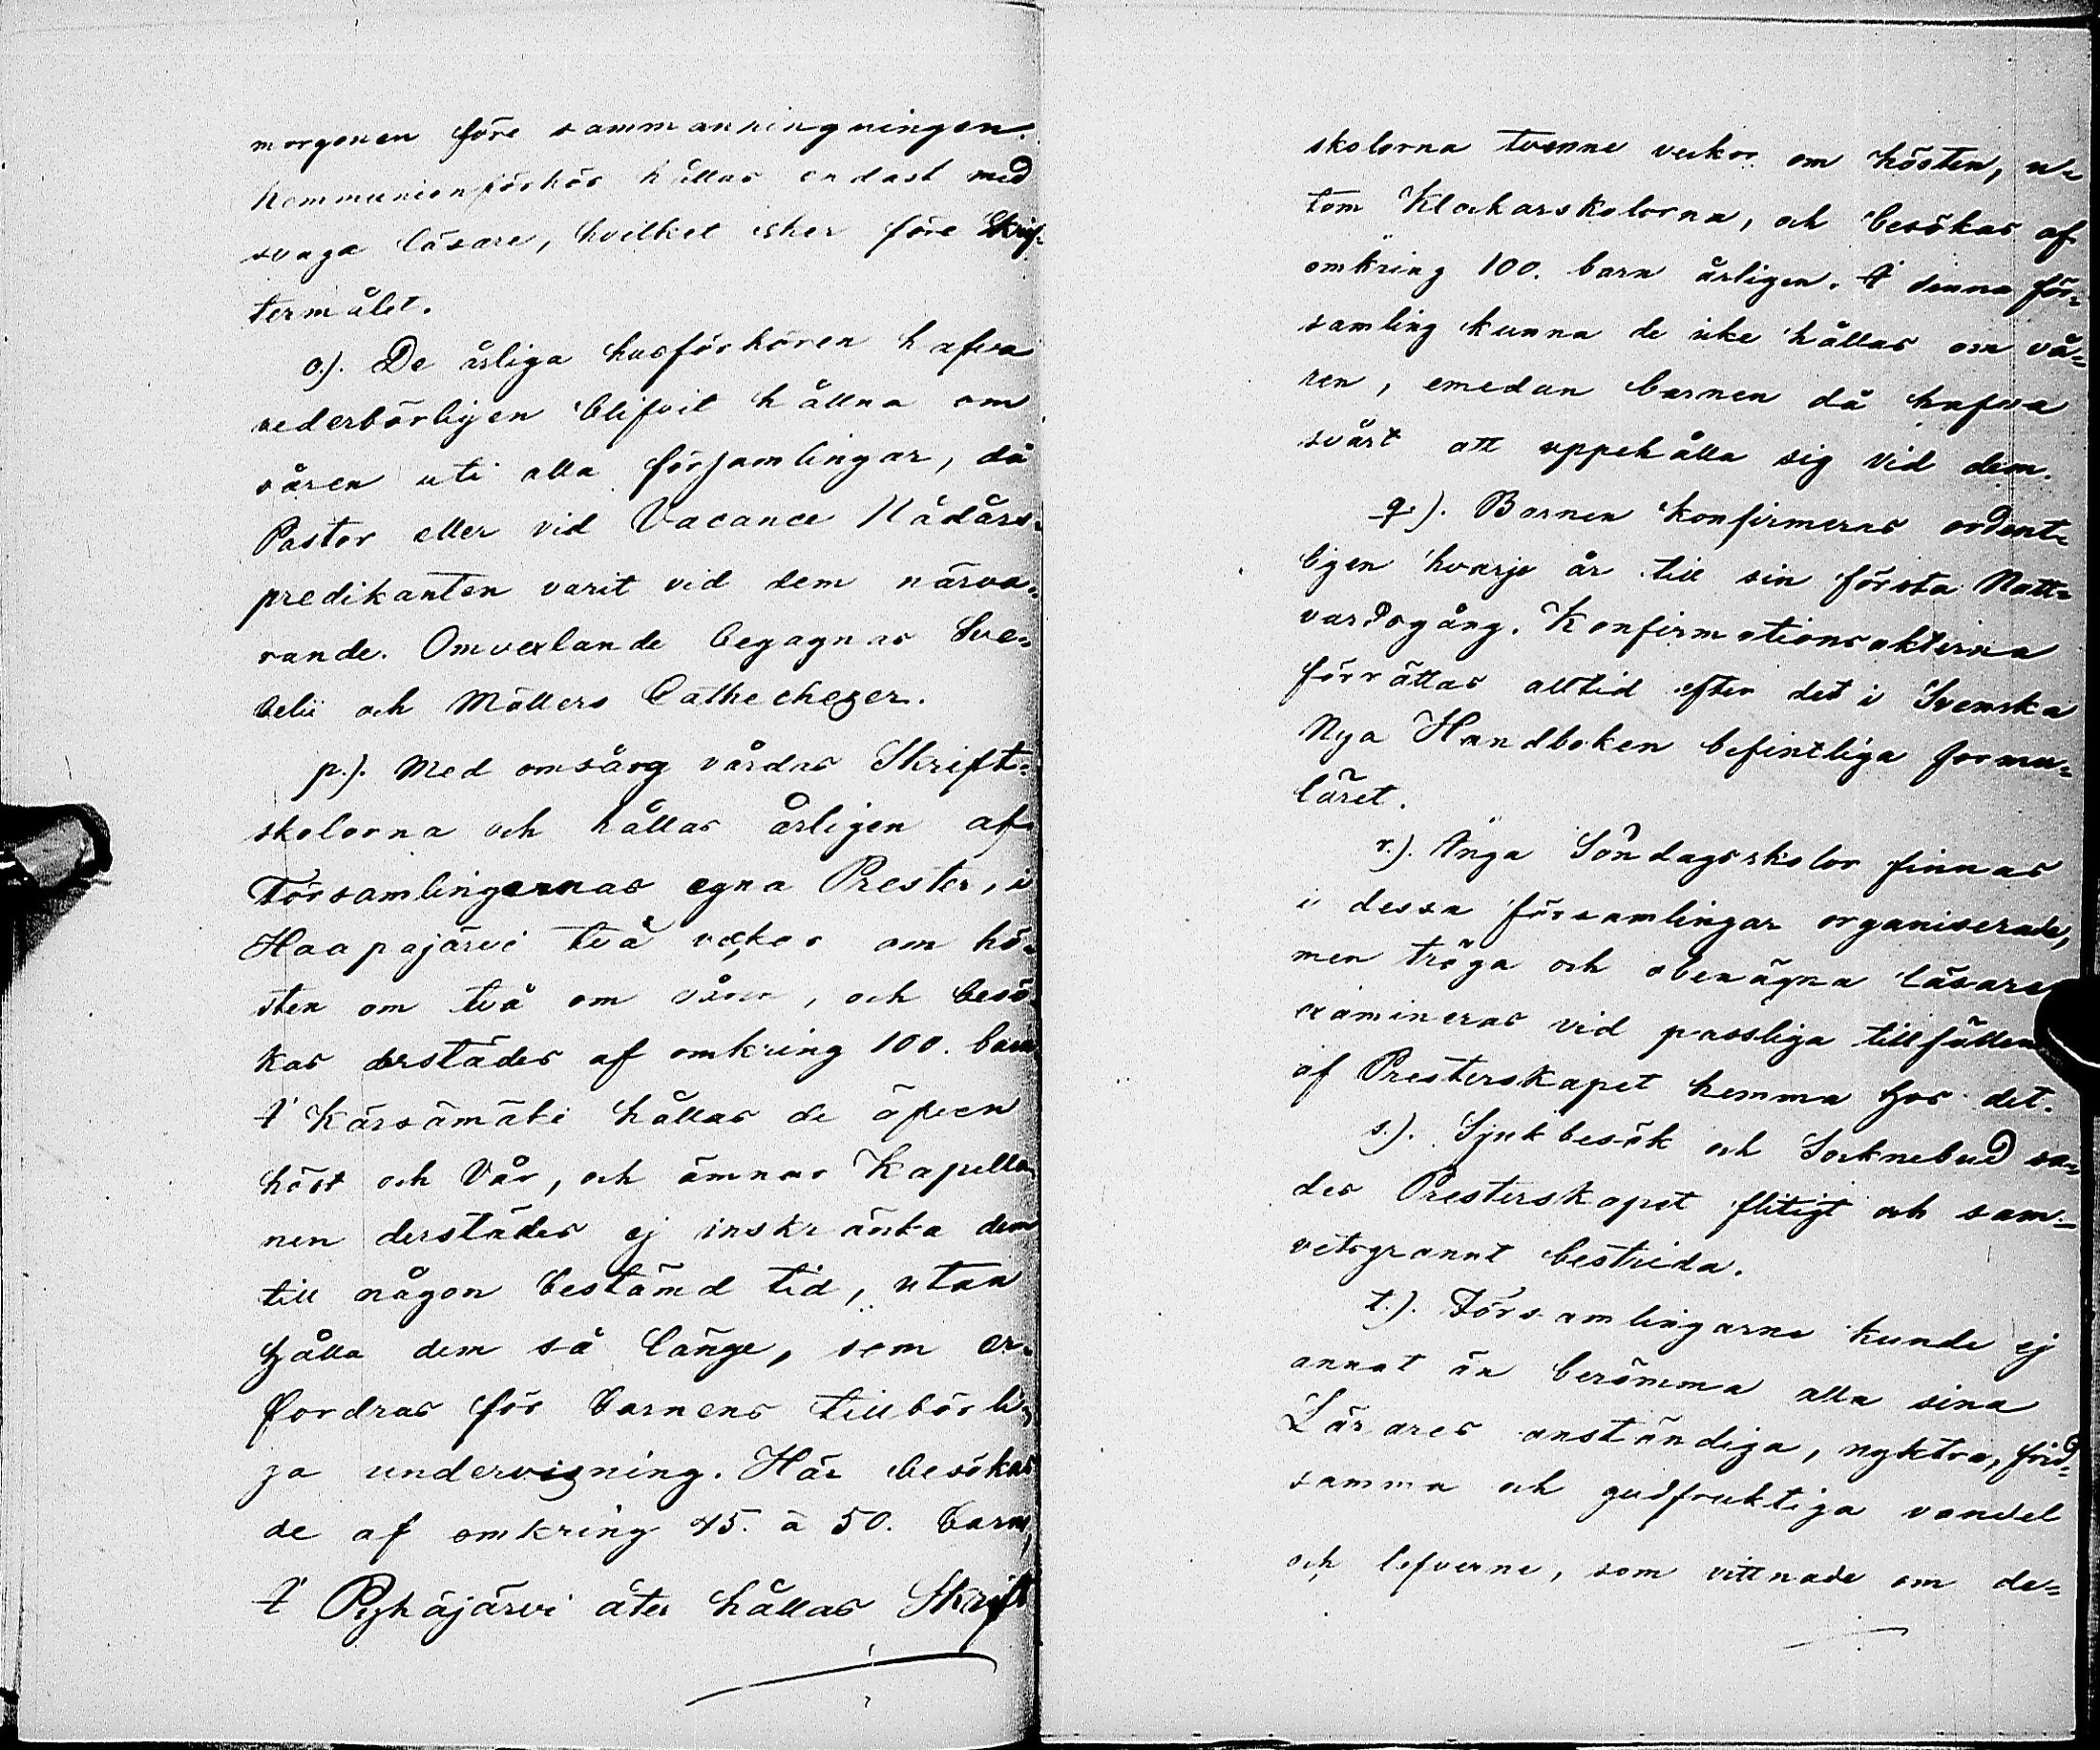 morgonen före sammanringningen.
Kommunionförhör hållas endast med
svaga läsare, hvilket sker före Skrif-
termålet.
o). De årliga husförhören hafva
vederbörligen blifvit hållna om
våren uti alla församlingar, då
Pastor eller vid Vacance Nådårs-
predikanten varit vid dem närva-
rande. Omvexlande begagnas Sve-
belii och Möllers Cathecheser.
p.). Med omsårg vårdas Skrift-
skolorna och hållas årligen af
Församlingarnas egna Prester, i
Haapajärvi två vekor om hö-
sten om två om våren, och besö-
kas derstädes af omkring 100. barn
I Kärsämäki hållas de äfven
höst och Vår, och ämnar Kapella-
nen derstädes ej inskränka dem
till någon bestämd tid, utan
hålla dem så länge, som er-
fordras för barnens tillbörli-
ga undervisning. Här besökas
de af omkring 45. à 50. barn,
I Pyhäjärvi åter hållas Skrift
skolorna tvenne veckor om hösten, u-
tom Klockarskolorna, och besökas af
omkring 100. barn årligen. I denna för-
samling kunna de icke hållas om vå-
ren, emedan barnen då hafva
svårt att uppehålla sig vid dem.
q.). Barnen konfirmeras ordent-
ligen hvarje år till sin första Natt-
vardsgång. Konfirmationsakterna
förrättas alltid efter det i Svenska
Nya Handboken befintliga formu-
läret.
r.). Inga Söndagsskolor finnas
i dessa församlingar organiserade,
men tröga och obenägna läsare
examineras vid passliga tillfällen
af Presterskapet hemma hos det.
s.). Sjukbesök och Socknebud sa-
des Presterskapet flitigt och sam-
vetsgrannt bestrida.
t.). Församlingarne kunde ej
annat än berömma alla sina
Lärares anständiga, nyktra, frid-
samma och gudfruktiga vandel
och lefverne, som vittnade om de-